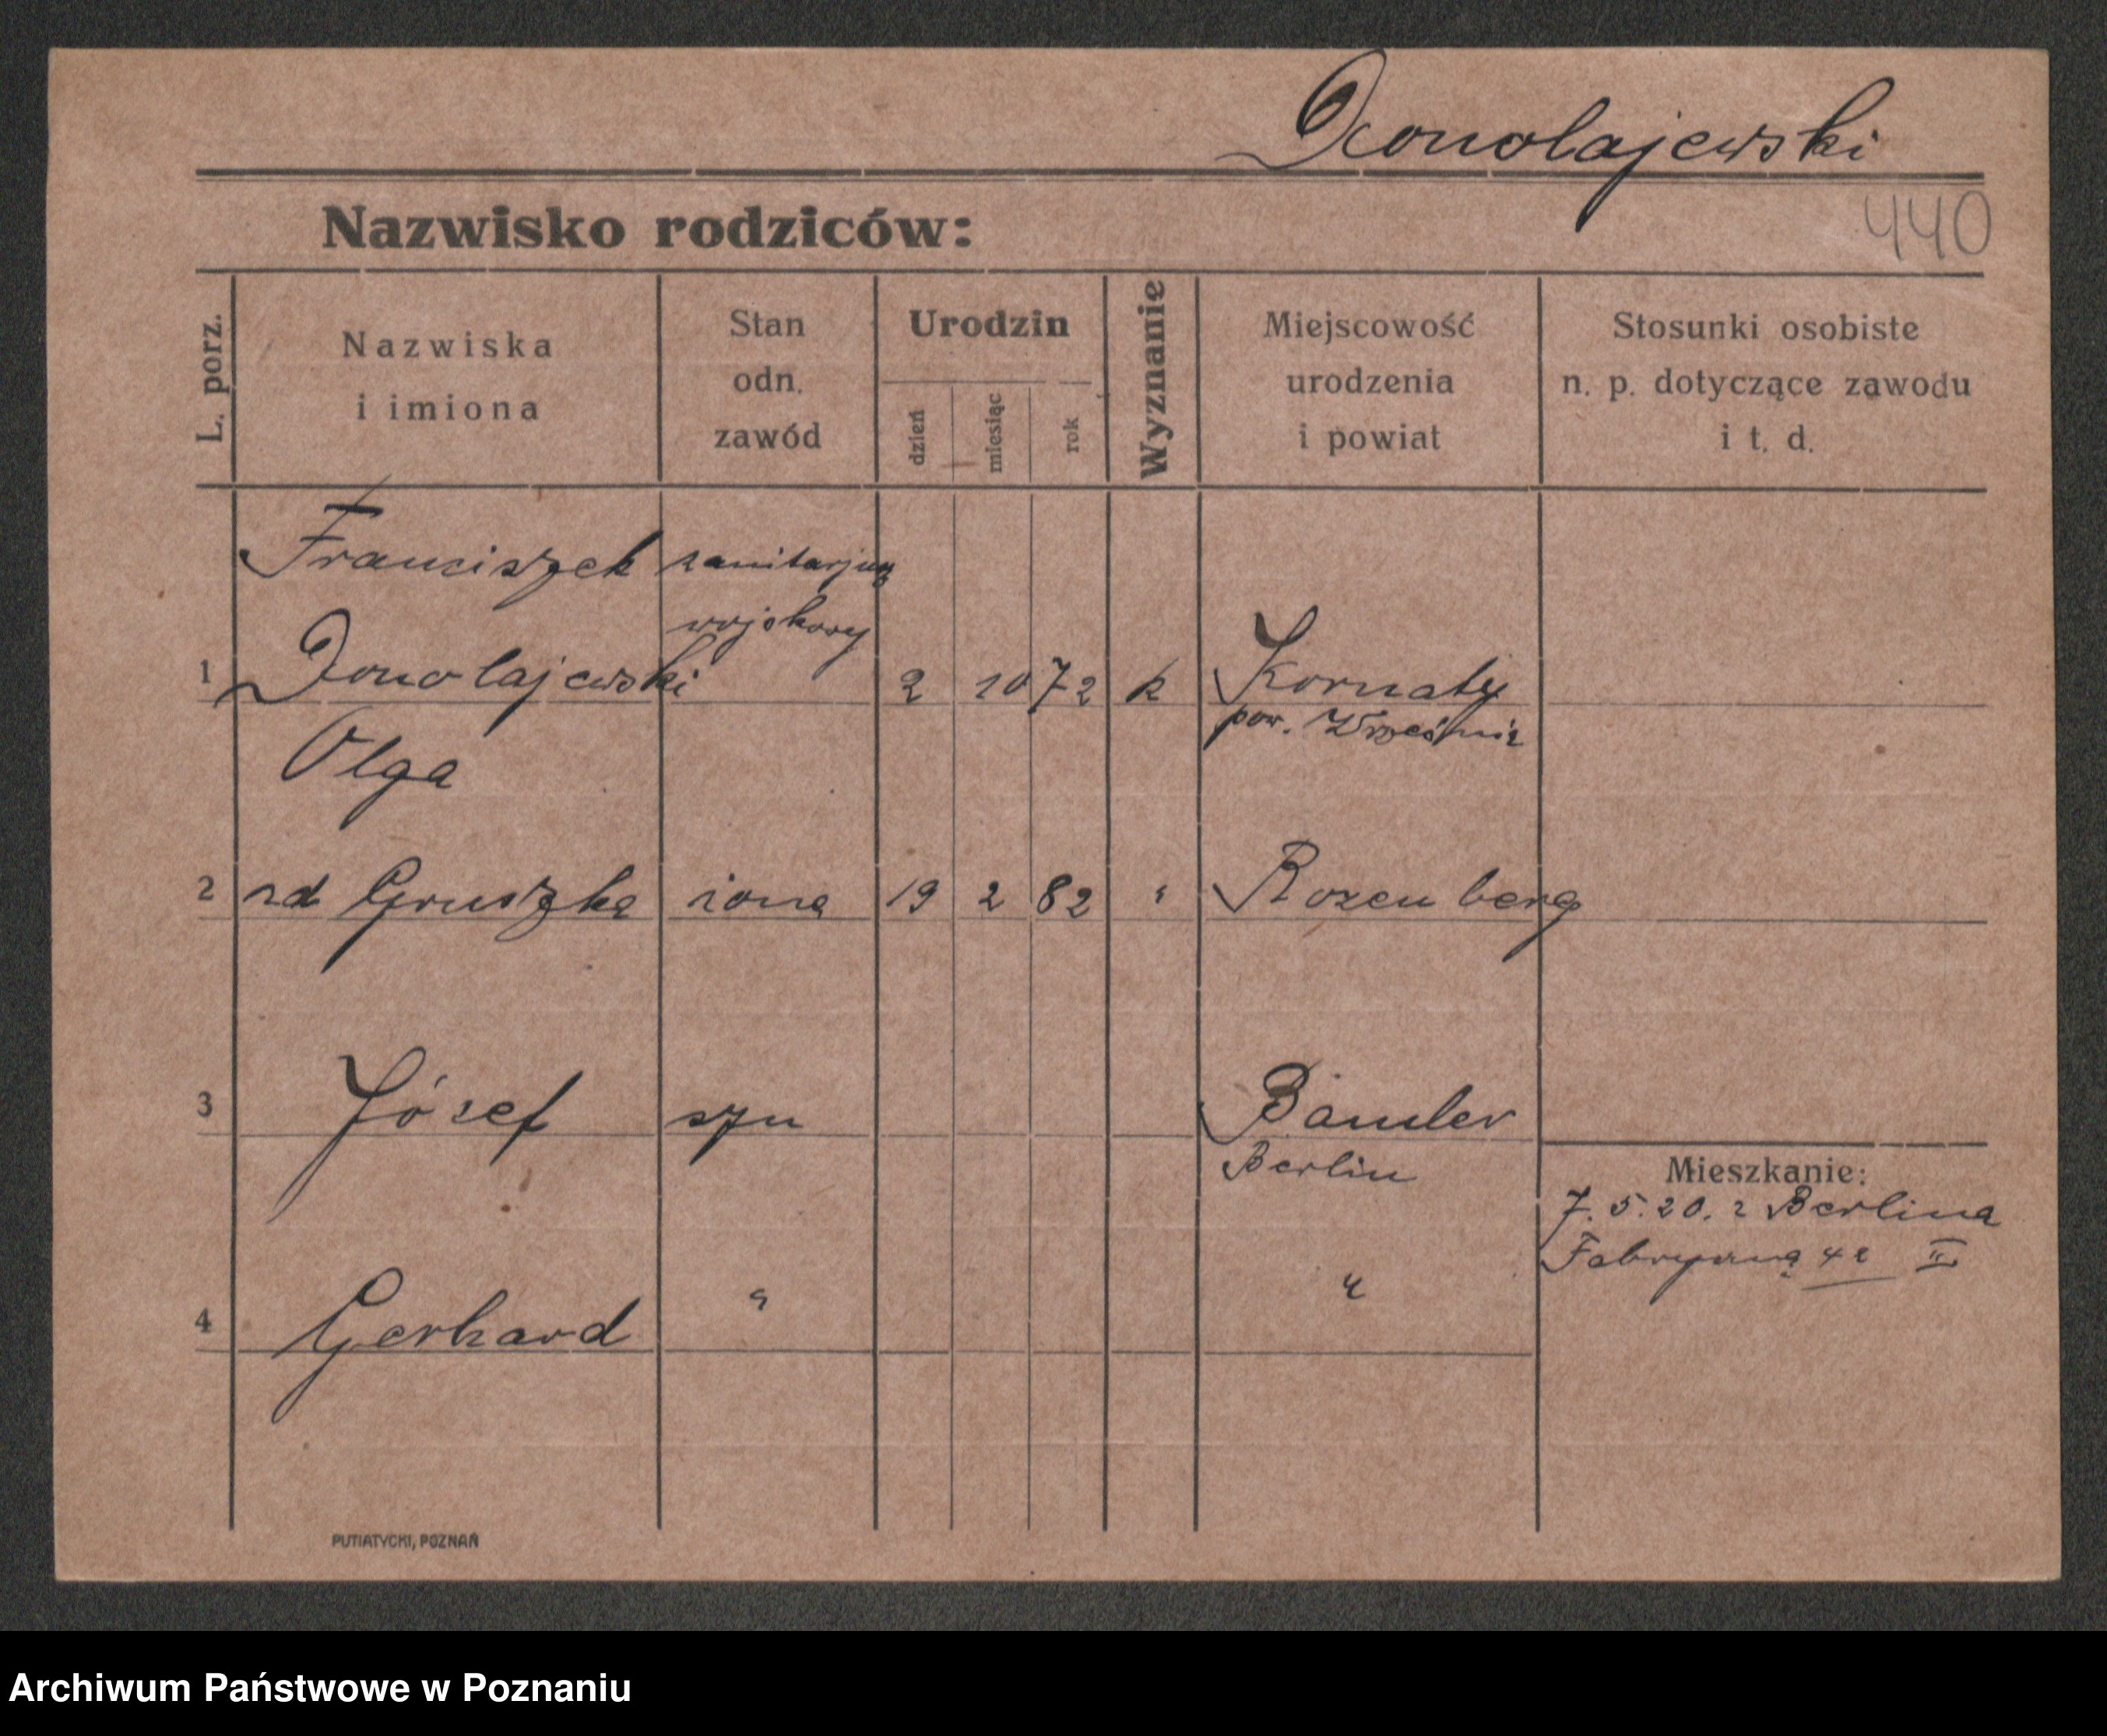 Donolajewski
440
Nazwisko rodziców:
L. porz.
Nazwiska
i imiona
Stan
odn.
zawód
Urodzin
dzień
miesiąc
rok
Wyznanie
Miejscowość
urodzenia
i powiat
Stosunki osobiste
n. p. dotyczące zawodu
i t. d.
Franciszek sanitarjusz
wojskowy
1 Donolajewski 2 10 72 k Kornaty
pow. Września
Olga
2 zd Gruszka żona 19 2 82 " Rozenberg
3 Józef syn
Berlin
Mieszkanie:
7. 5. 20. z Berlina
Fabryczna 42 II
4 Gerhard " "
PUTIATYCKI, POZNAŃ
Archiwum Państwowe w Poznaniu